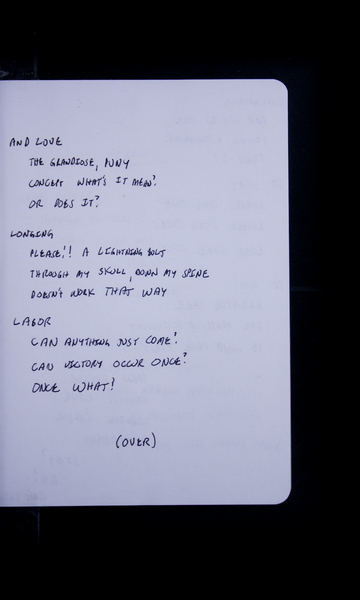 AND LOVE
THE GRANDIOSE, PUNY
CONCEPT WHAT'S IT MEAN?
OR DOES IT?
LONGING
PLEASE!! A LIGHTNING BOLT
THROUGH MY SKULL, DOWN MY SPINE
DOESN'T WORK THAT WAY
LABOR
CAN ANYTHING JUST COME?
CAN VICTORY OCCUR ONCE?
ONCE WHAT?
(OVER)